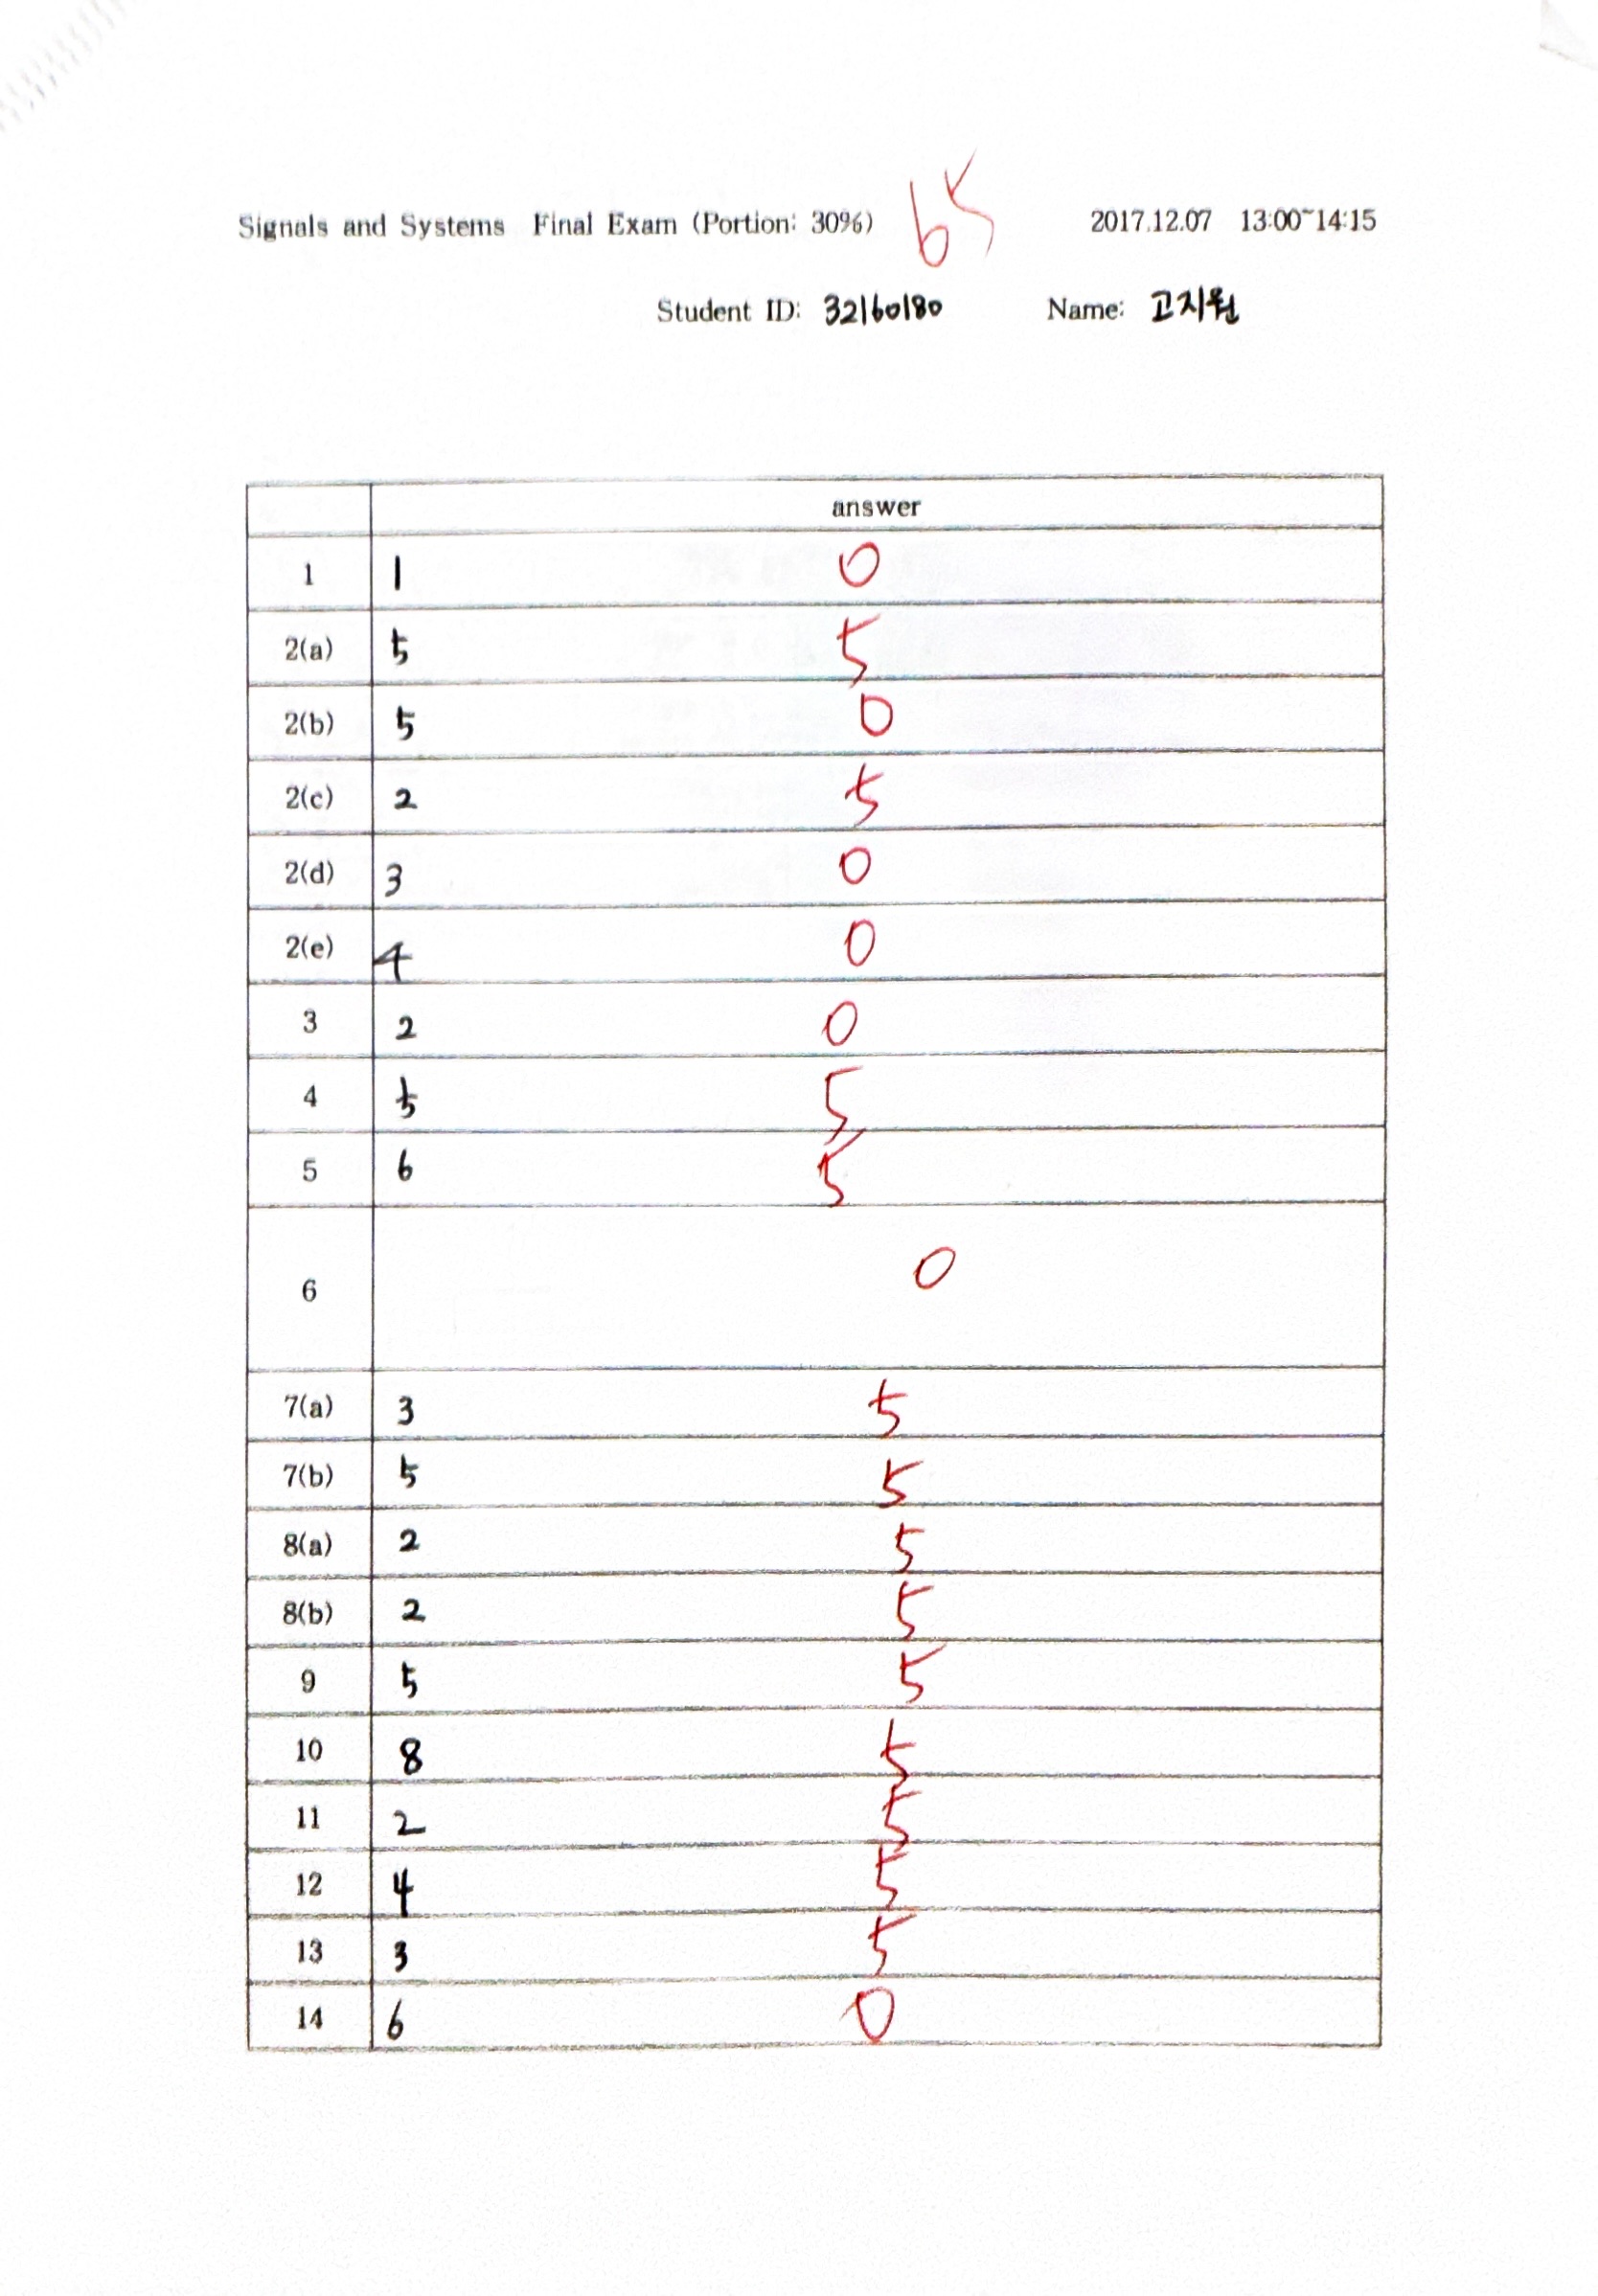 Signals and Systems Final Exam (Portion: 30%) 65 2017.12.07 13:00~14:15
Student ID: 32160180 Name: 고지원
answer
1 1 0
2(a) 5 5
2(b) 5 0
2(c) 2 5
2(d) 3 0
2(e) 4 0
3 2 0
4 5 5
5 6 5
6 0
7(a) 3 5
7(b) 5 5
8(a) 2 5
8(b) 2 5
9 5 5
10 8 5
11 2 5
12 4 5
13 3 5
14 6 0